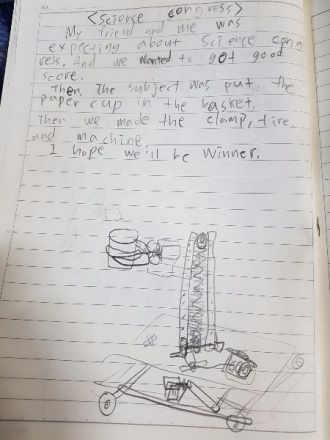 <Science congress>
My friend and me was
expecting about Science cong
ress. And we wanted to got good
score.
Then, The subject was put the
paper cup in the basket.
Then we made the clamp, tire,
and machine.
I hope we'll be winner.